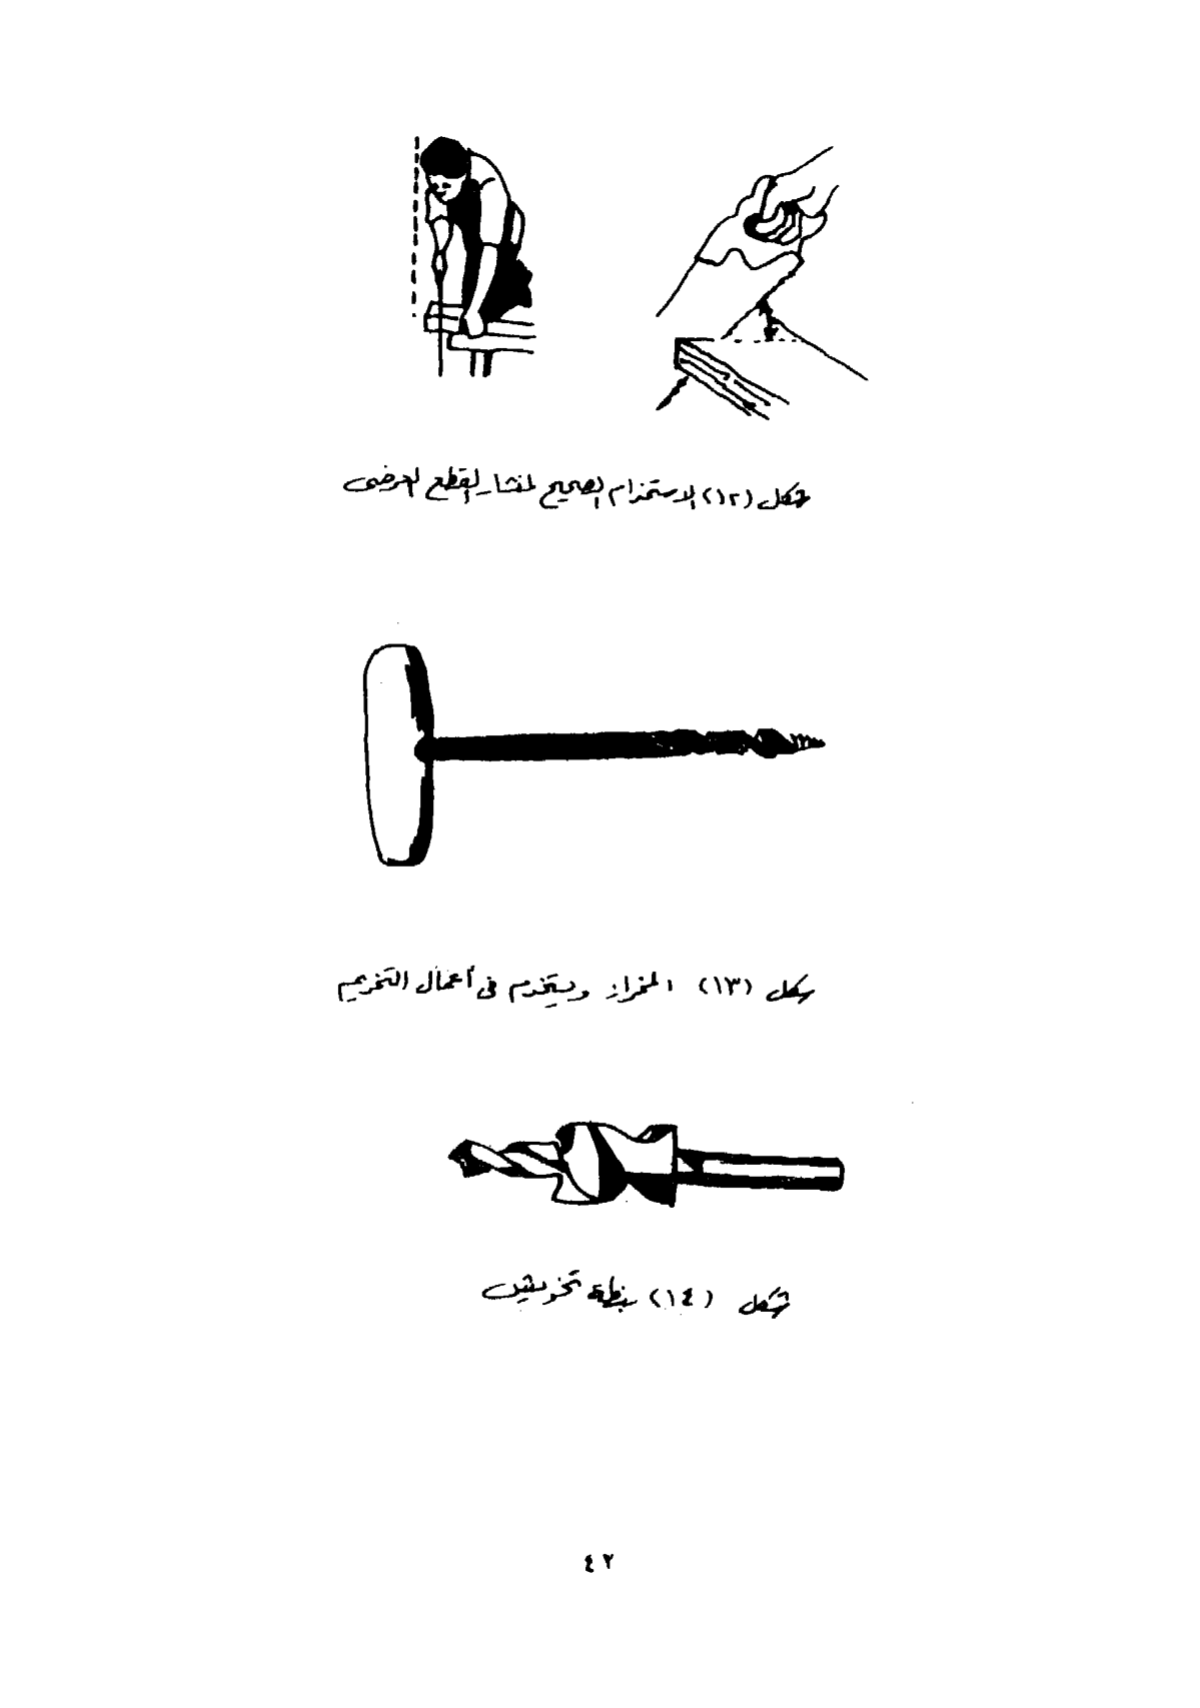 شكل (١٢) الاستخدام الصحيح لمنشار القطع العرضى
شكل (١٣) المخراز ويستخدم فى أعمال التخريم
شكل (١٤) بنطة تخويش
٤٢